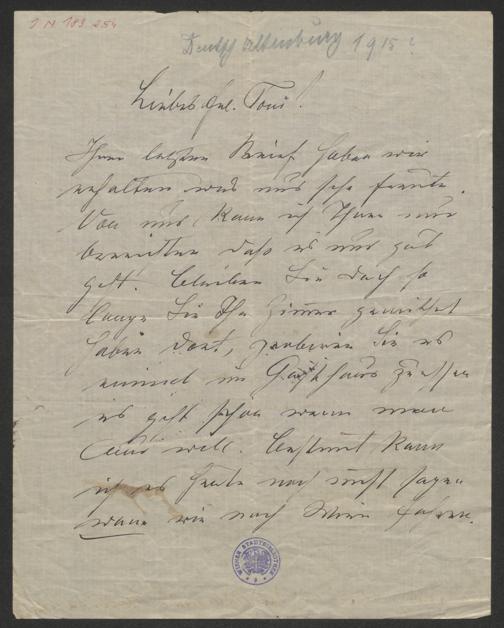 I N 189.254
Deutsch Altenburg 1915?
Liebes Frl. Toni!
Ihren letzten Brief haben wir
erhalten was uns sehr freute.
Von uns kann ich Ihnen nur
berichten daß es uns gut
geht. Bleiben Sie doch so
lange Sie Ihr Zimmer gemietet
haben dort, probieren Sie es
einmal im Gasthaus zu essen
es geht schon wenn man
will. Bestimmt kann
ich es heute noch nicht sagen
wann wir nach Wien fahren.
WIENER STADTBIBLIOTHEK